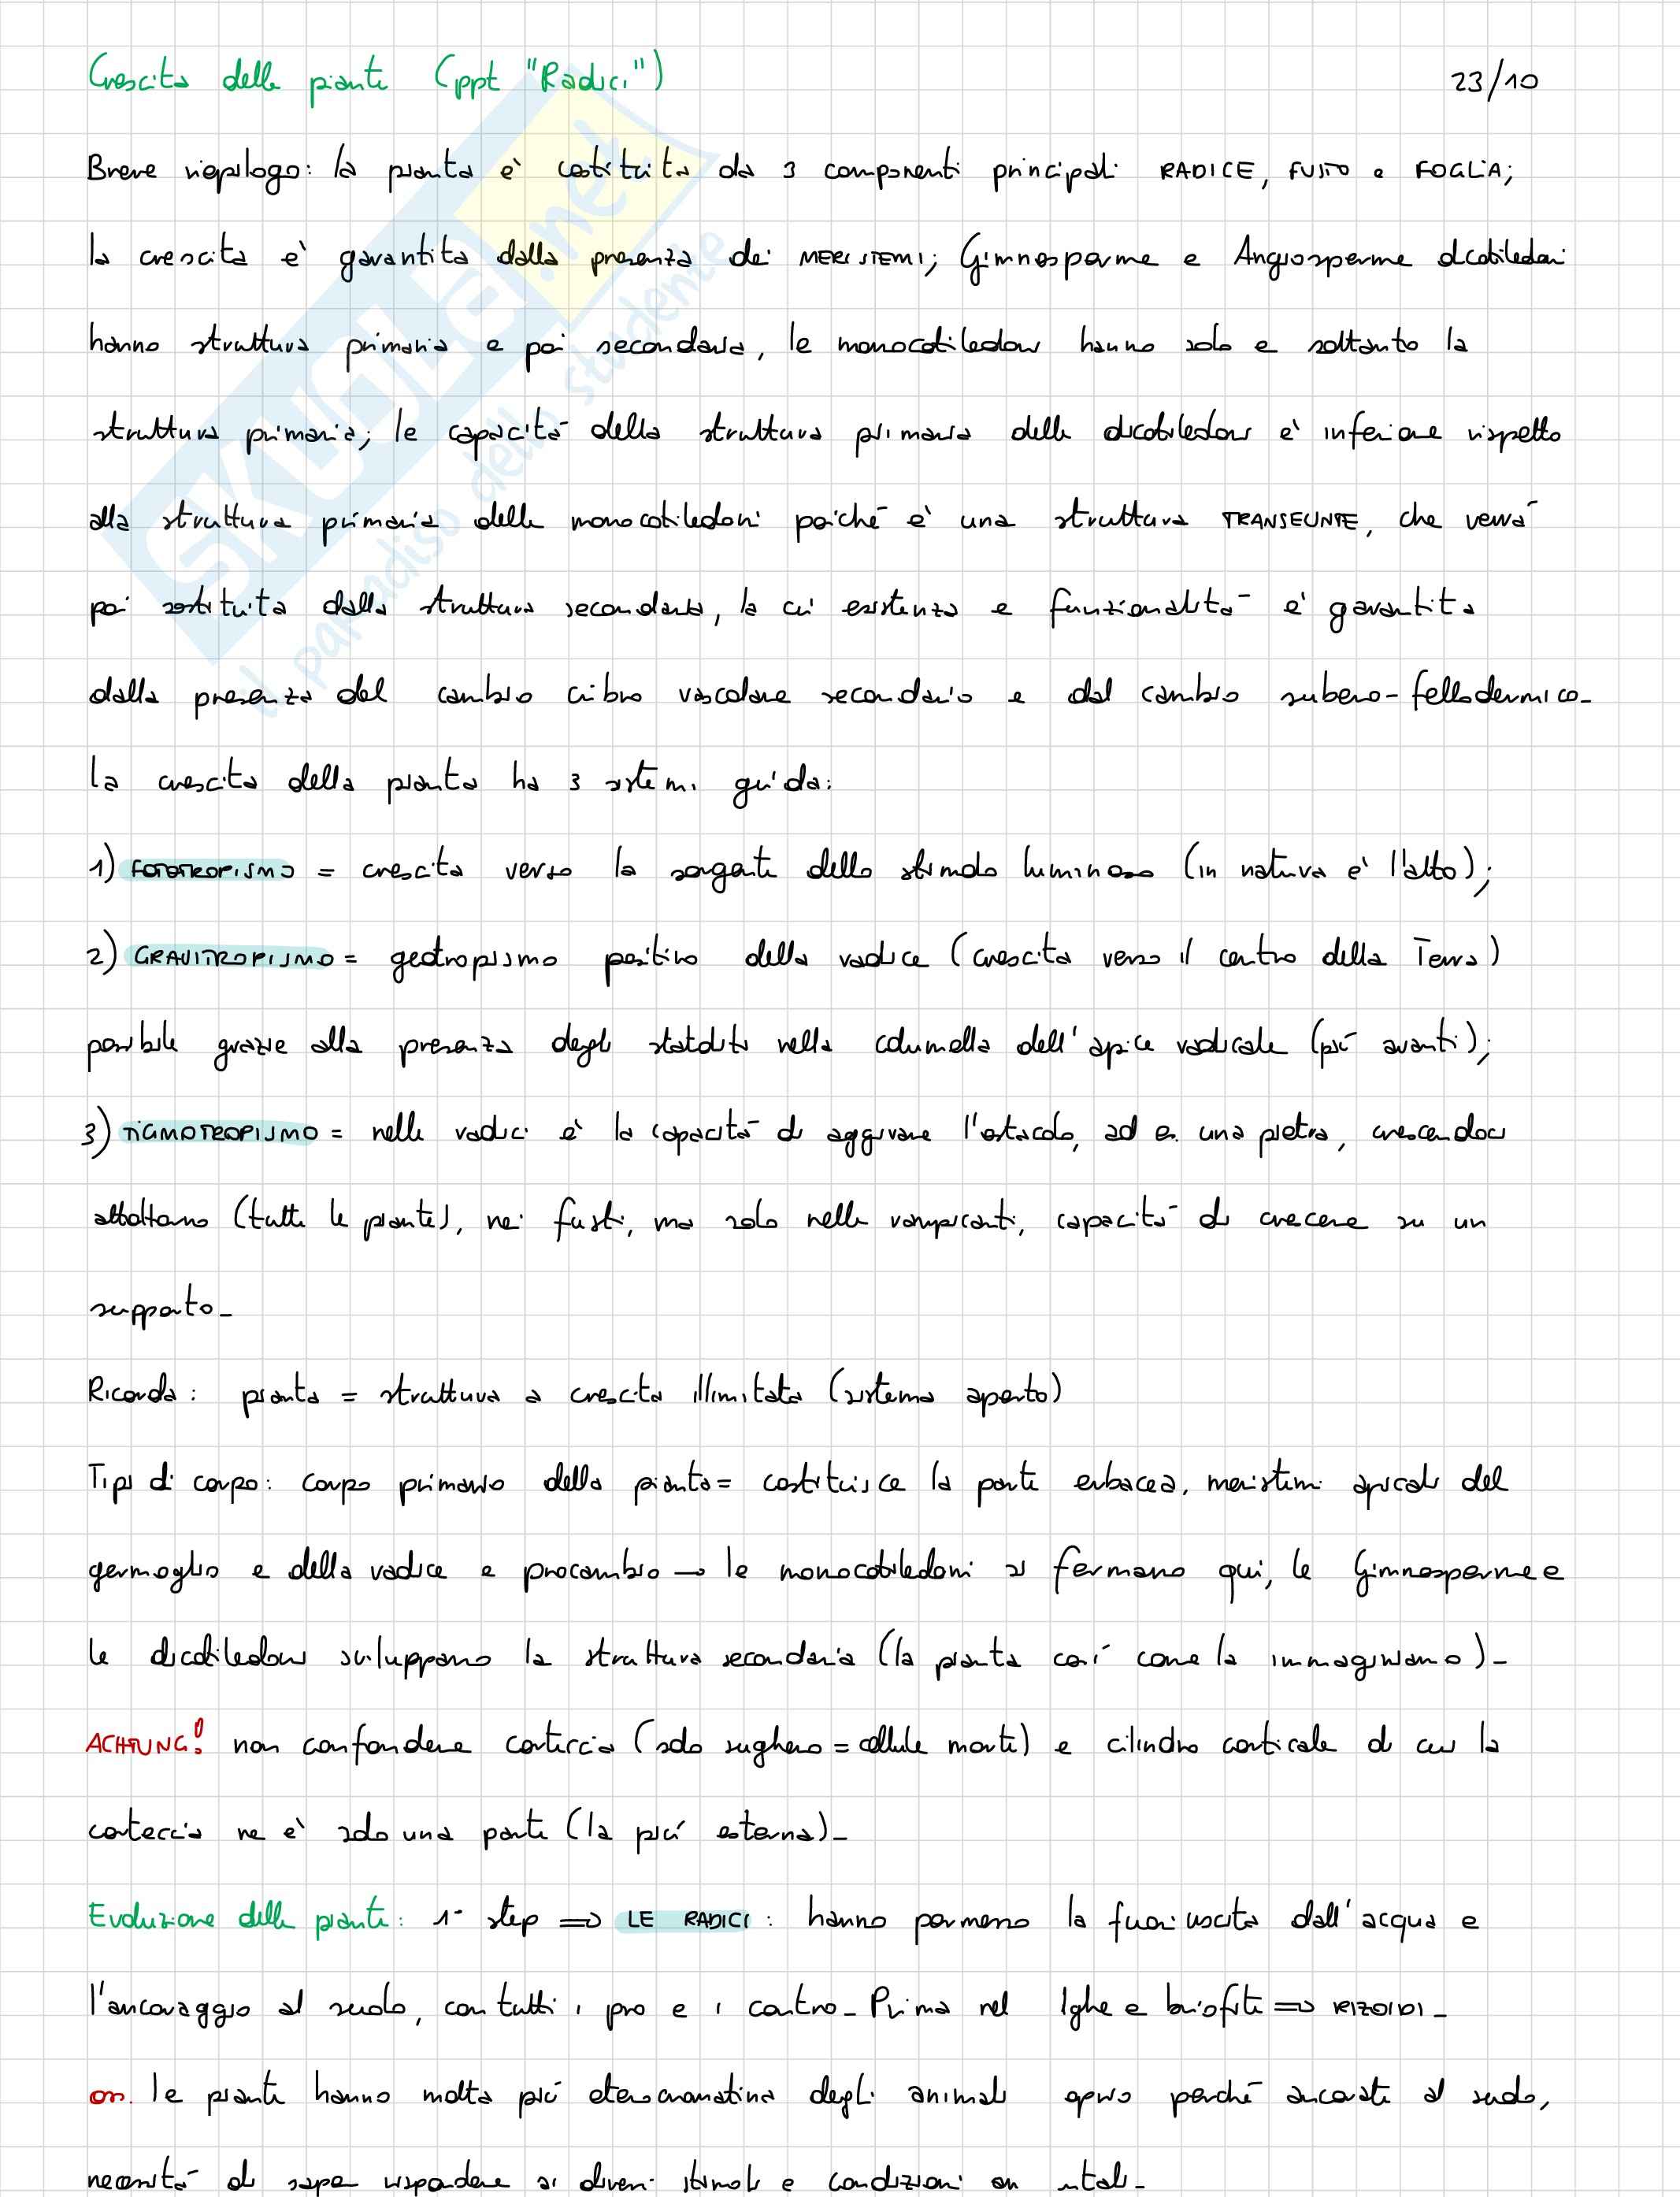 Crescita delle piante (ppt "Radici") 23/10
Breve riepilogo: la pianta è costituita da 3 componenti principali RADICE, FUSTO e FOGLIA;
la crescita è garantita dalla presenza dei MERISTEMI; Gimnosperme e Angiosperme dicotiledoni
hanno struttura primaria e poi secondaria, le monocotiledoni hanno solo e soltanto la
struttura primaria; le capacità della struttura primaria delle dicotiledoni è inferiore rispetto
alla struttura primaria delle monocotiledoni poiché è una struttura TRANSEUNTE, che verrà
poi sostituita dalla struttura secondaria, la cui esistenza e funzionalità è garantita
dalla presenza del cambio cribro vascolare secondario e dal cambio subero-fellodermico-
la crescita della pianta ha 3 sistemi guida:
1) FOTOTROPISMO = crescita verso la sorgente dello stimolo luminoso (in natura è l'alto);
2) GRAVITROPISMO = geotropismo positivo della radice (crescita verso il centro della Terra)
possibile grazie alla presenza degli statoliti nella columella dell'apice radicale (più avanti);
3) TIGMOTROPISMO = nelle radici è la capacità di aggirare l'ostacolo, ad es. una pietra, crescendoci
attorno (tutte le piante), nei fusti, ma solo nelle rampicanti, capacità di crecere su un
supporto-
Ricorda: pianta = struttura a crescita illimitata (sistema aperto)
Tipi di corpo: corpo primario della pianta = costituisce la parte erbacea, meristemi apicali del
germoglio e della radice e procambio → le monocotiledoni si fermano qui, le Gimnosperme e
le dicotiledoni sviluppano la struttura secondaria (la pianta così come la immaginiamo)-
ACHTUNG! non confondere corteccia (solo sughero = cellule morte) e cilindro corticale di cui la
corteccia ne è solo una parte (la più esterna)-
Evoluzione delle piante: 1° step ⇒ LE RADICI: hanno permesso la fuoriuscita dall'acqua e
l'ancoraggio al suolo, con tutti i pro e i contro- Prima nel lghe e briofite ⇒ RIZOIDI-
oss. le piante hanno molta più eterocromatina degli animali perché ancorate al suolo,
necessità di saper rispondere ai diversi stimoli e condizioni
skuola.net
il paradiso dello studente